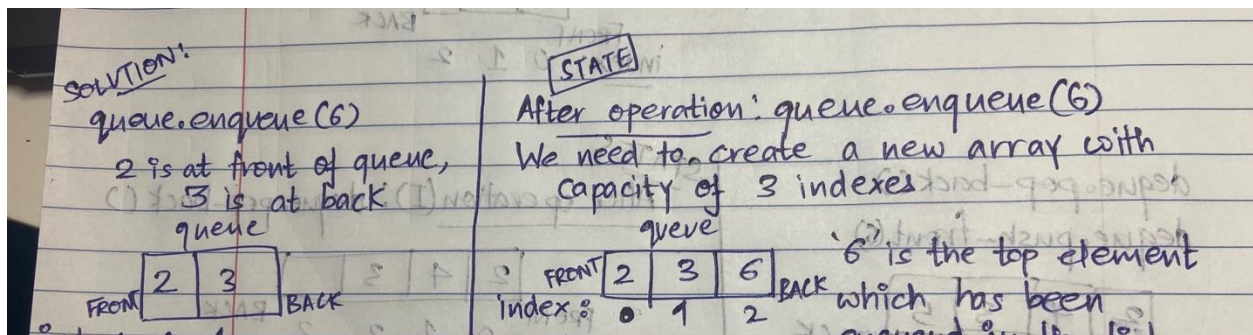 SOLUTION:
queue.enqueue(6)
2 is at front of queue,
3 is at back
queue
2 3
FRONT BACK
STATE
After operation: queue.enqueue(6)
We need to create a new array with
capacity of 3 indexes
queue
FRONT 2 3 6 BACK
index: 0 1 2
'6' is the top element
which has been